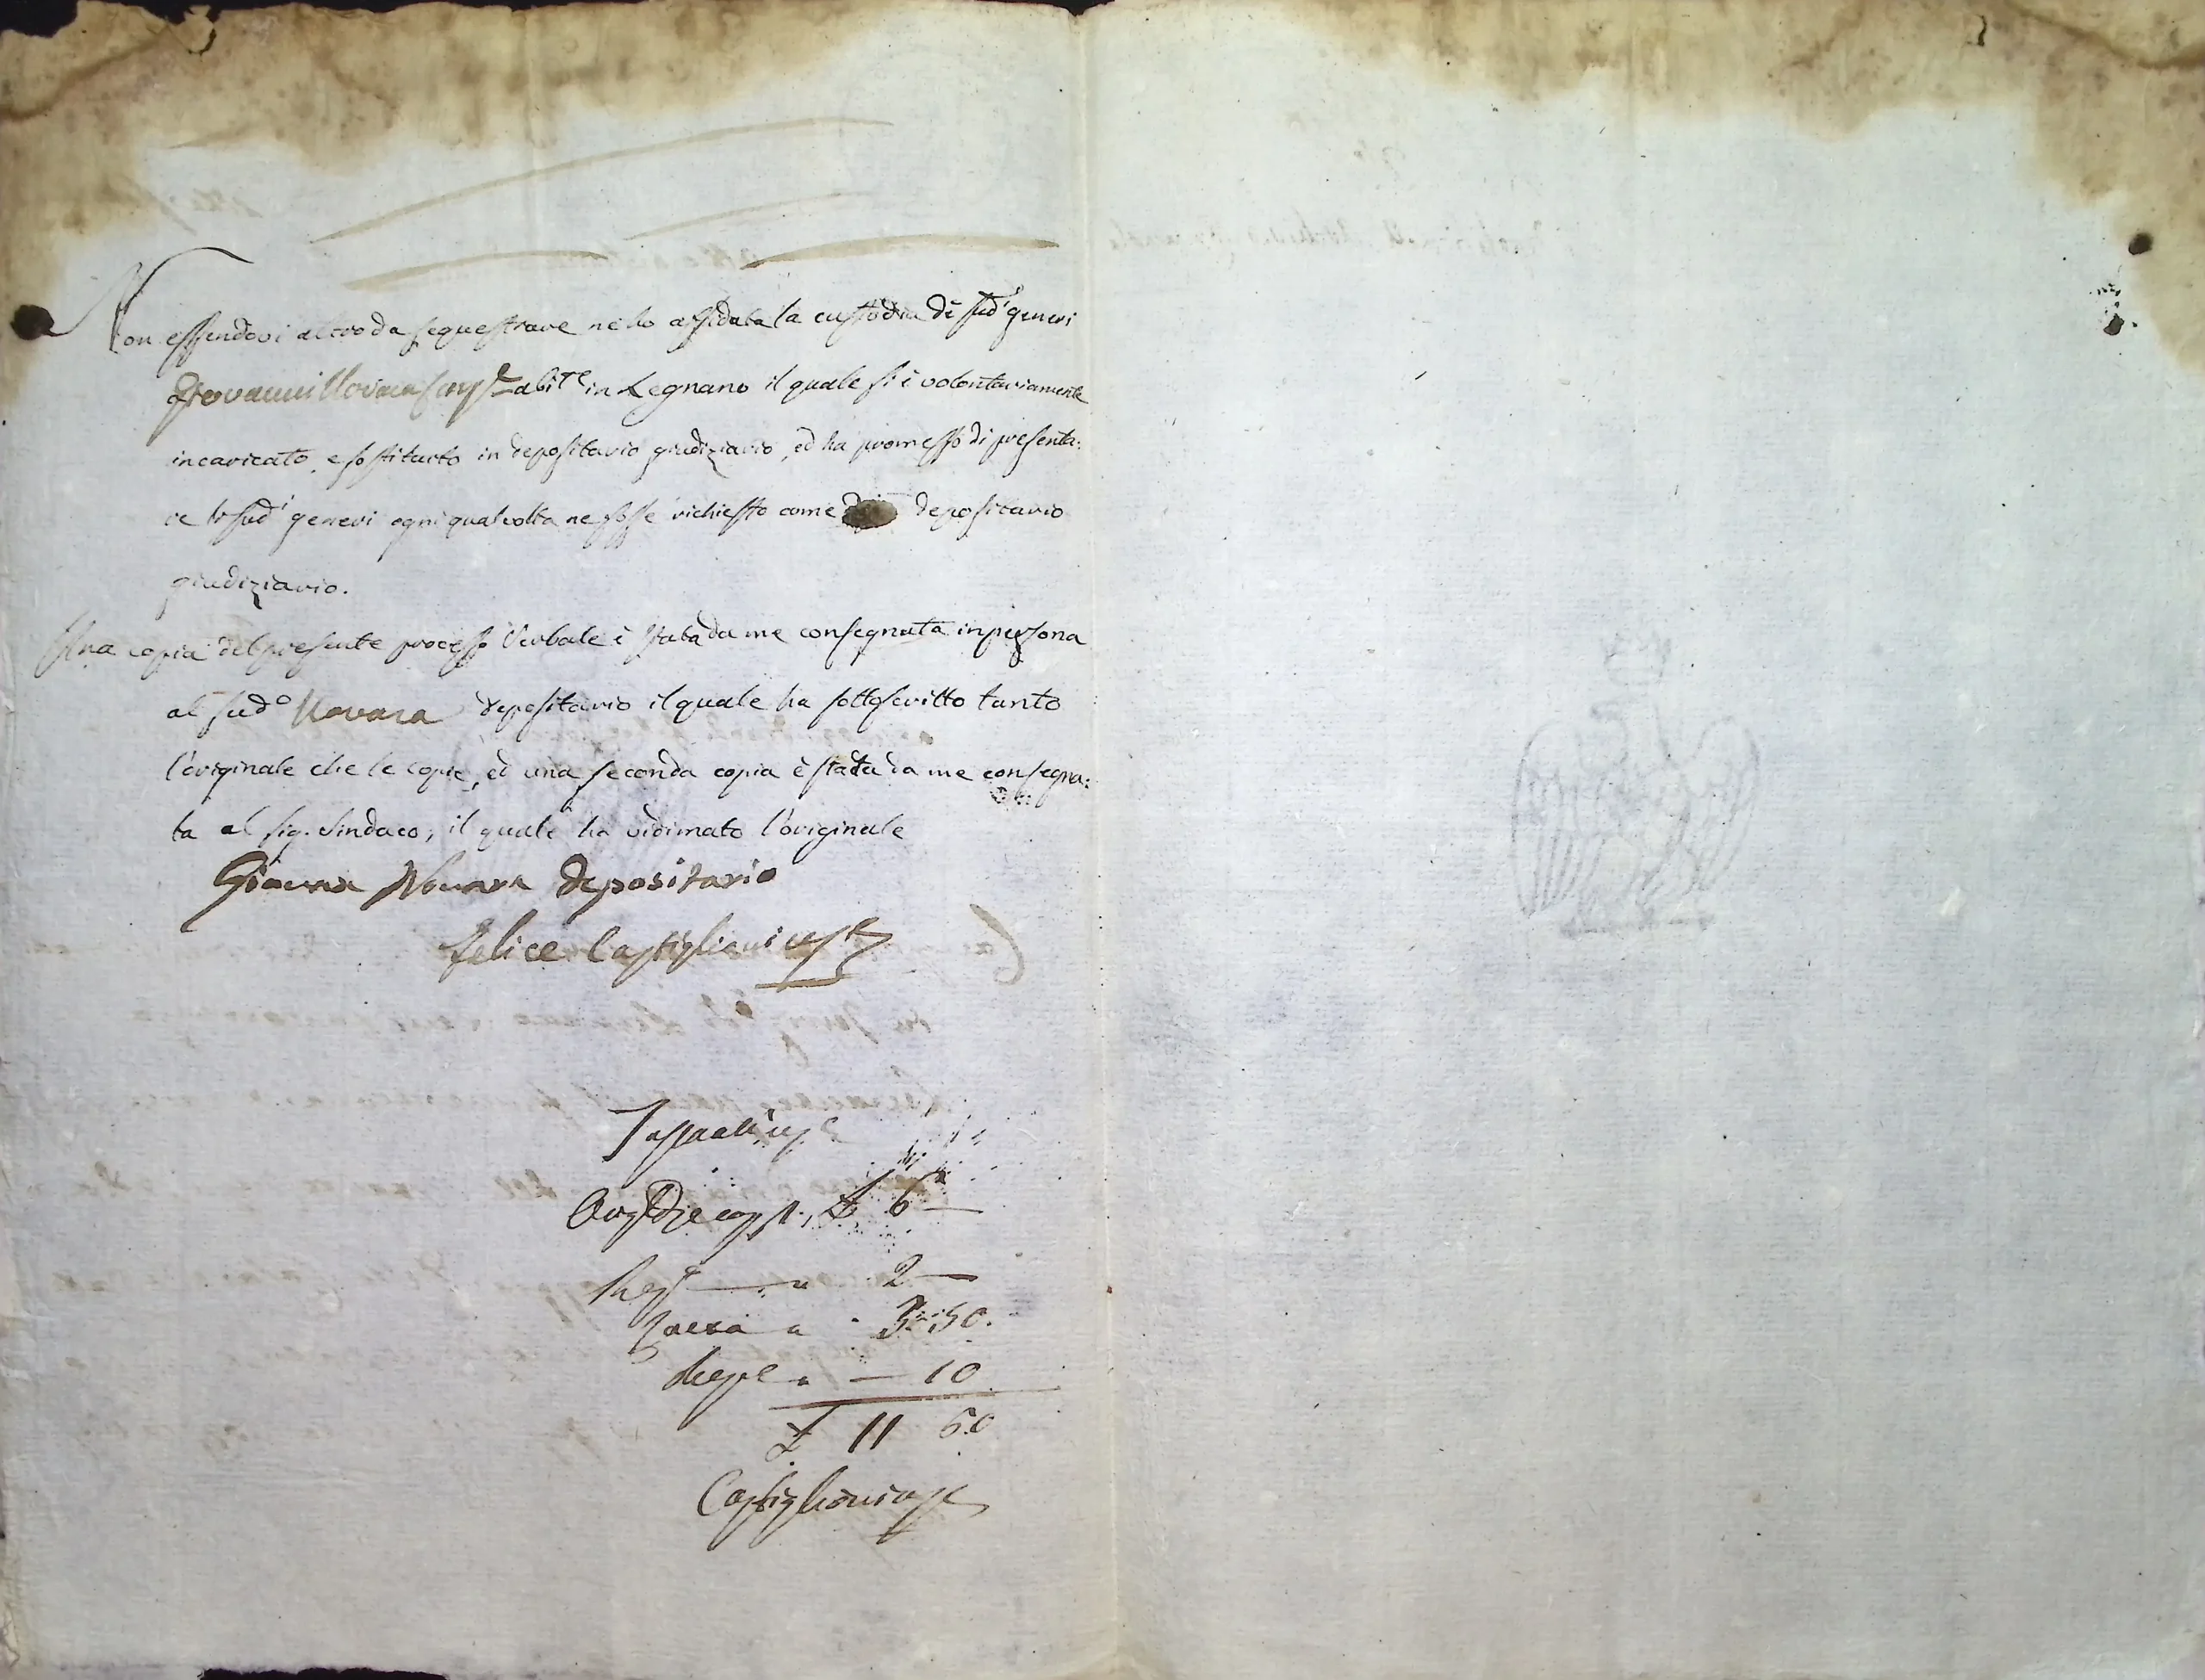 Non essendovi altro da sequestrare ne ho affidata la custodia di sud.i generi
Giovanni Novara abit.te in Legnano il quale si è volontariamente
incaricato, e sostituito in depositario giudiziario, ed ha promesso di presenta:
re li sud.i generi ogni qual volta ne fosse richiesto come depositario
giudiziario.
Una copia del presente processo Verbale è stata da me consegnata in persona
al sud.o Novara depositario il quale ha sottoscritto tanto
l'originale che le copie, ed una seconda copia è stata da me consegna:
ta al sig. Sindaco, il quale ha vidimato l'originale
Giovana Novara depositario
Felice Castiglioni
£ 6 —
2 —
3:50.
— 10
£ 11 60
Castiglioni